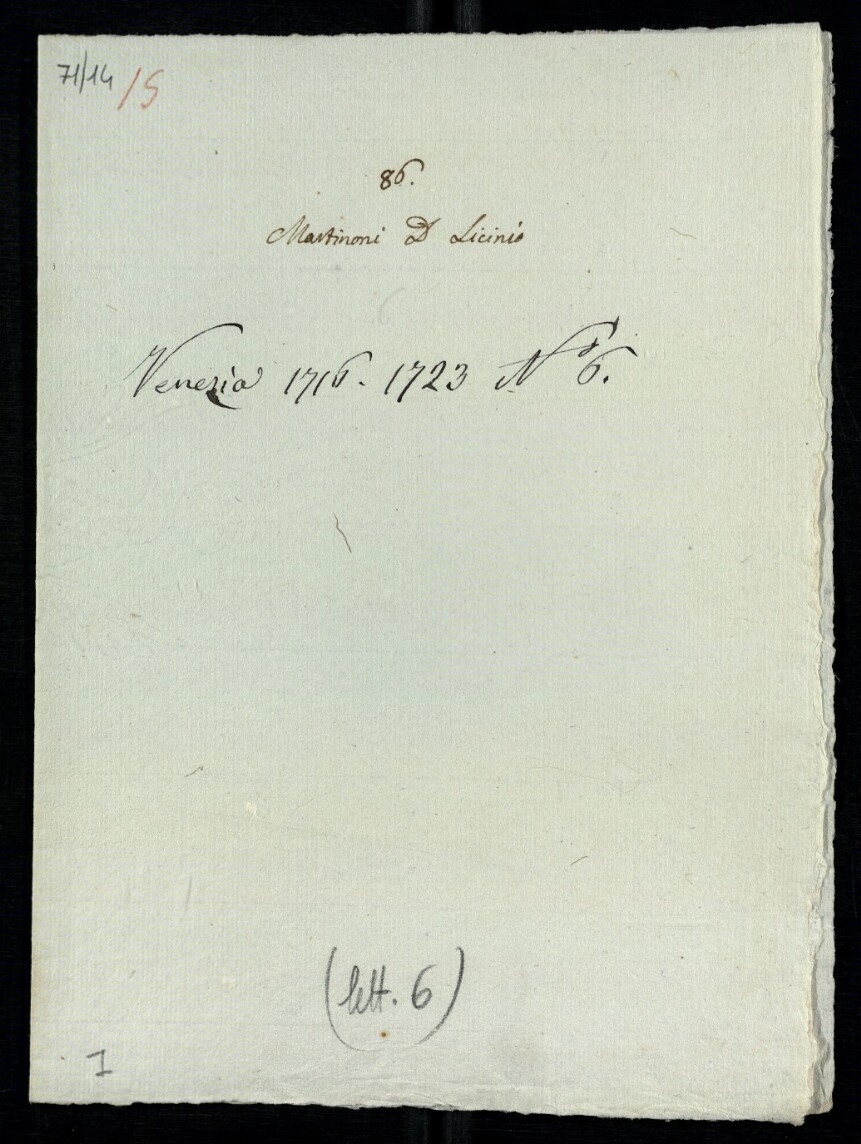 71/14 /5
86.
Martinoni D. Licinio
Venezia 1716. 1723 N.o 6.
(lett. 6)
1